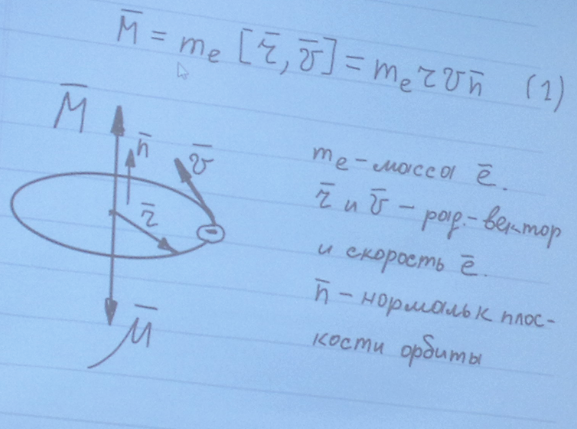 M̅ = mₑ [r̅, v̅] = mₑ r v n̅ (1)
M̅
n̅
v̅
r̅
–
μ̅
mₑ – масса e̅.
r̅ и v̅ – рад.-вектор
и скорость e̅.
n̅ – нормаль к плос-
кости орбиты